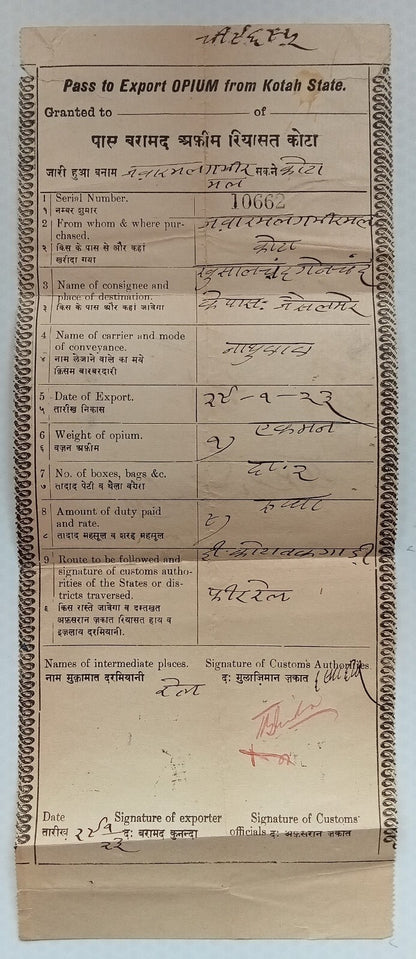 Pass to Export OPIUM from Kotah State.
Granted to of
पास बरामद अफ़ीम रियासत कोटा
जारी हुआ बनाम जवारमल गमीर मकने कोटा
मल
1 Serial Number. 10662
१ नम्बर शुमार
2 From whom & where pur- जवारमल गमीरमल
chased.
२ किस के पास से और कहां कोटा
खरीदा गया
3 Name of consignee and
place of destination.
३ किस के पास और कहां जावेगा के पास जैसलमेर
4 Name of carrier and mode
of conveyance.
४ नाम लेजाने वाले का मये
क़िसम बारबरदारी
5 Date of Export. २४-१-२३
५ तारीख निकास
6 Weight of opium. १) एकमन
६ वज़न अफ़ीम
7 No. of boxes, bags &c. २
७ तादाद पेटी व थैला वगैरा
8 Amount of duty paid
and rate.
८ तादाद महसूल व शरह महसूल
9 Route to be followed and
signature of customs autho-
rities of the States or dis-
tricts traversed.
९ किस रास्ते जावेगा व दस्तखत
अफ़सरान ज़कात रियासत हाय व
इज़लाय दरमियानी.
Names of intermediate places. Signature of Custom's Authorities.
नाम मुक़ामात दरमियानी द: मुलाज़िमान ज़कात
रेल
Date Signature of exporter Signature of Customs'
तारीख़ द: बरामद कुनन्दा officials द: अफ़सरान ज़कात